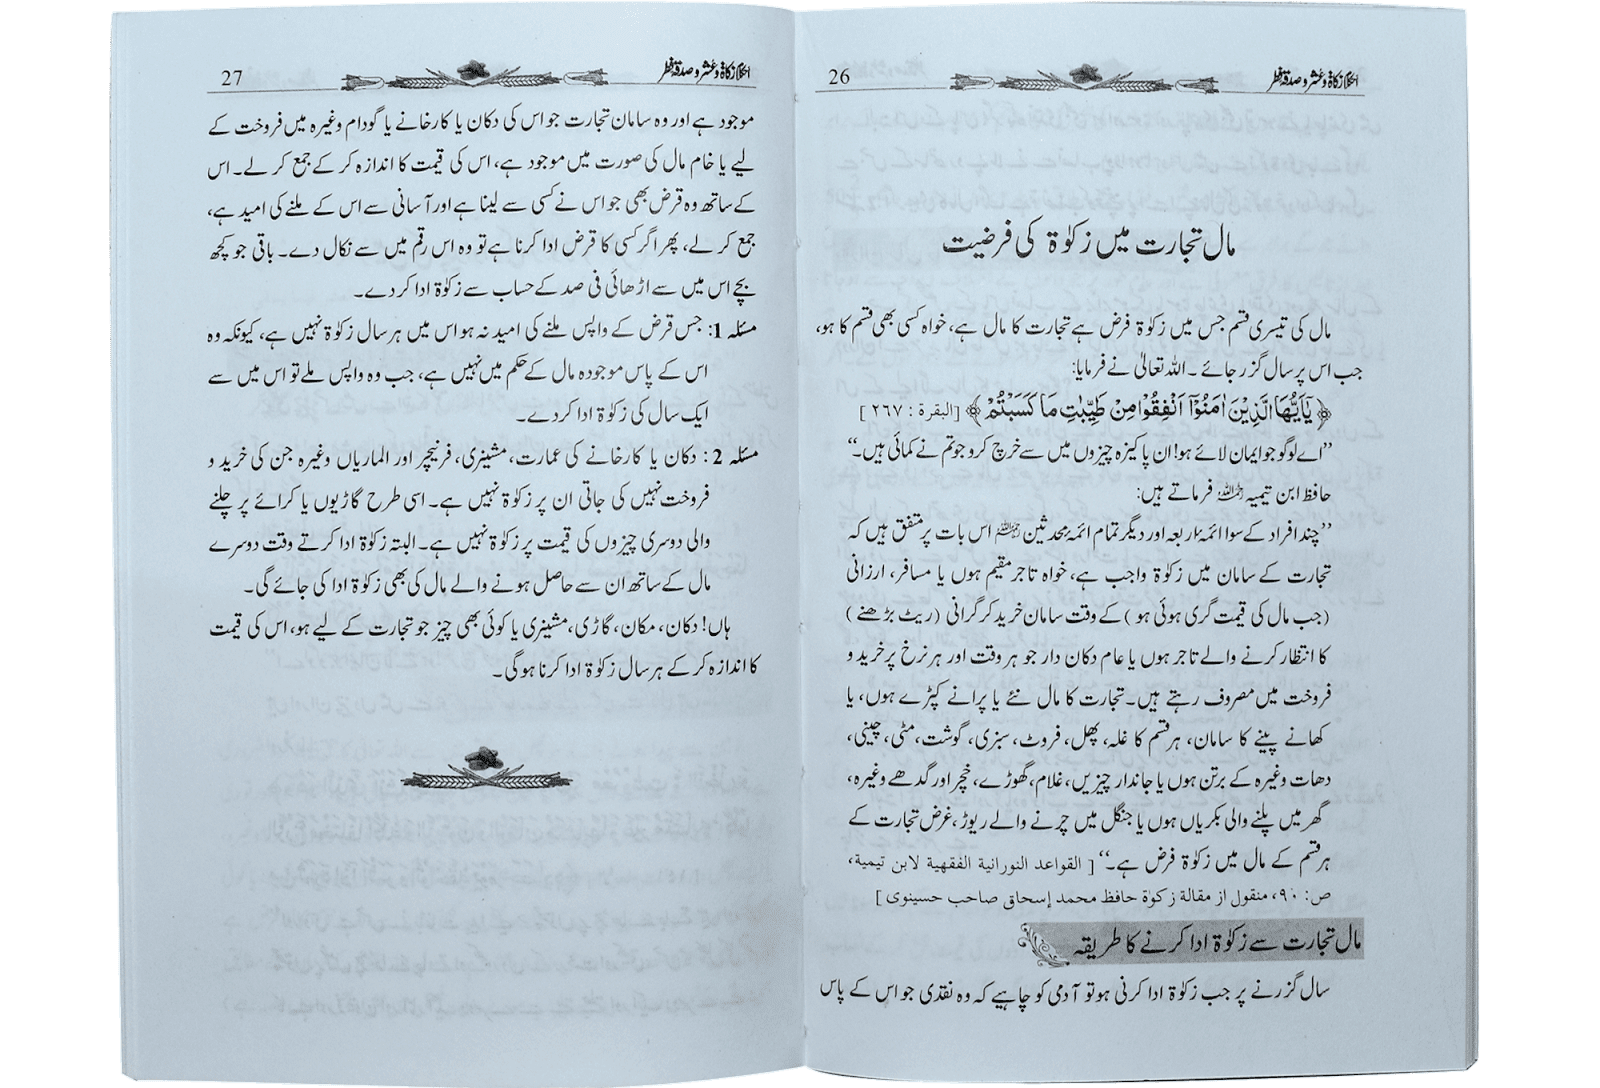 احکام زکاۃ و عشر و صدقۃ فطر
26
مال تجارت میں زکوٰۃ کی فرضیت
مال کی تیسری قسم جس میں زکوٰۃ فرض ہے تجارت کا مال ہے، خواہ کسی بھی قسم کا ہو،
جب اس پر سال گزر جائے۔ اللہ تعالیٰ نے فرمایا:
﴿ يٰٓاَيُّهَا الَّذِيْنَ اٰمَنُوْٓا اَنْفِقُوْا مِنْ طَيِّبٰتِ مَا كَسَبْتُمْ ﴾ [البقرة : ٢٦٧ ]
”اے لوگو جو ایمان لائے ہو! ان پاکیزہ چیزوں میں سے خرچ کرو جو تم نے کمائی ہیں۔“
حافظ ابن تیمیہ رحمہ اللہ فرماتے ہیں:
”چند افراد کے سوا ائمہ اربعہ اور دیگر تمام ائمہ محدثین رحمہم اللہ اس بات پر متفق ہیں کہ
تجارت کے سامان میں زکوٰۃ واجب ہے، خواہ تاجر مقیم ہوں یا مسافر، ارزانی
(جب مال کی قیمت گری ہوئی ہو) کے وقت سامان خرید کر گرانی (ریٹ بڑھنے)
کا انتظار کرنے والے تاجر ہوں یا عام دکان دار جو ہر وقت اور ہر نرخ پر خرید و
فروخت میں مصروف رہتے ہیں۔ تجارت کا مال نئے یا پرانے کپڑے ہوں، یا
کھانے پینے کا سامان، ہر قسم کا غلہ، پھل، فروٹ، سبزی، گوشت، مٹی، چینی،
دھات وغیرہ کے برتن ہوں یا جاندار چیزیں، غلام، گھوڑے، خچر اور گدھے وغیرہ،
گھر میں پلنے والی بکریاں ہوں یا جنگل میں چرنے والے ریوڑ، غرض تجارت کے
ہر قسم کے مال میں زکوٰۃ فرض ہے۔“ [ القواعد النورانية الفقهية لابن تيمية،
ص: ٩٠، منقول از مقالة زكوة حافظ محمد إسحاق صاحب حسينوى ]
مال تجارت سے زکوٰۃ ادا کرنے کا طریقہ
سال گزرنے پر جب زکوٰۃ ادا کرنی ہو تو آدمی کو چاہیے کہ وہ نقدی جو اس کے پاس
احکام زکاۃ و عشر و صدقۃ فطر
27
موجود ہے اور وہ سامان تجارت جو اس کی دکان یا کارخانے یا گودام وغیرہ میں فروخت کے
لیے یا خام مال کی صورت میں موجود ہے، اس کی قیمت کا اندازہ کر کے جمع کر لے۔ اس
کے ساتھ وہ قرض بھی جو اس نے کسی سے لینا ہے اور آسانی سے اس کے ملنے کی امید ہے،
جمع کر لے، پھر اگر کسی کا قرض ادا کرنا ہے تو وہ اس رقم میں سے نکال دے۔ باقی جو کچھ
بچے اس میں سے اڑھائی فی صد کے حساب سے زکوٰۃ ادا کر دے۔
مسئلہ 1: جس قرض کے واپس ملنے کی امید نہ ہو اس میں ہر سال زکوٰۃ نہیں ہے، کیونکہ وہ
اس کے پاس موجودہ مال کے حکم میں نہیں ہے، جب وہ واپس ملے تو اس میں سے
ایک سال کی زکوٰۃ ادا کر دے۔
مسئلہ 2: دکان یا کارخانے کی عمارت، مشینری، فرنیچر اور الماریاں وغیرہ جن کی خرید و
فروخت نہیں کی جاتی ان پر زکوٰۃ نہیں ہے۔ اسی طرح گاڑیوں یا کرائے پر چلنے
والی دوسری چیزوں کی قیمت پر زکوٰۃ نہیں ہے۔ البتہ زکوٰۃ ادا کرتے وقت دوسرے
مال کے ساتھ ان سے حاصل ہونے والے مال کی بھی زکوٰۃ ادا کی جائے گی۔
ہاں! دکان، مکان، گاڑی، مشینری یا کوئی بھی چیز جو تجارت کے لیے ہو، اس کی قیمت
کا اندازہ کر کے ہر سال زکوٰۃ ادا کرنا ہوگی۔